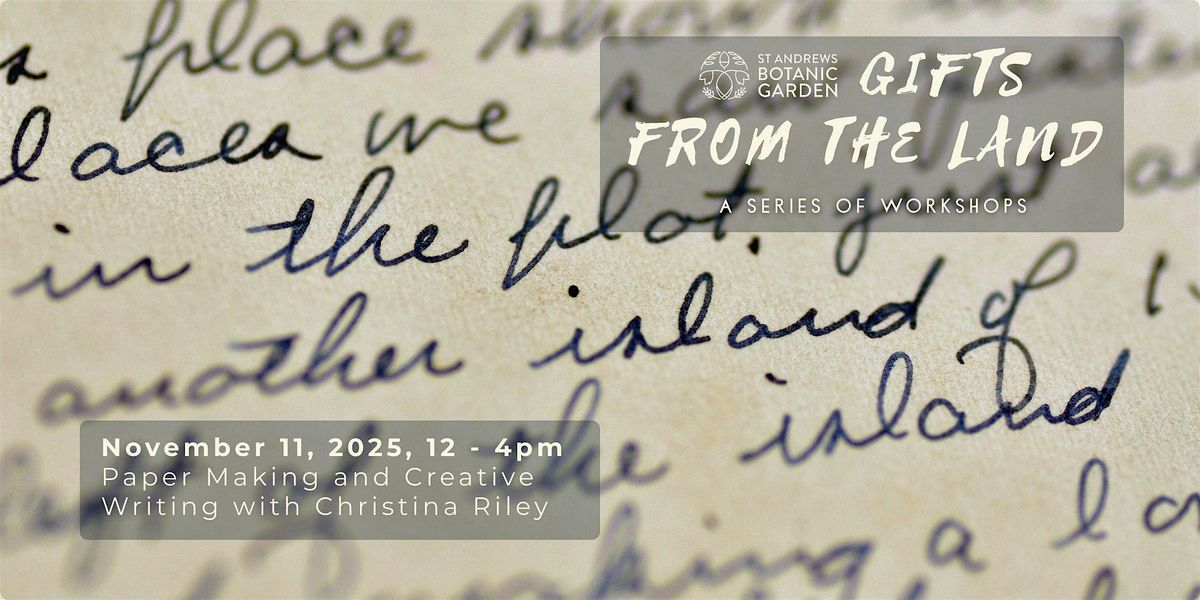 s place shown
ST ANDREWS
BOTANIC
GARDEN
GIFTS
laces we
FROM THE LAND
in the plot. just
A SERIES OF WORKSHOPS
another island of
the island
November 11, 2025, 12 - 4pm
Paper Making and Creative
Writing with Christina Riley
making a lo